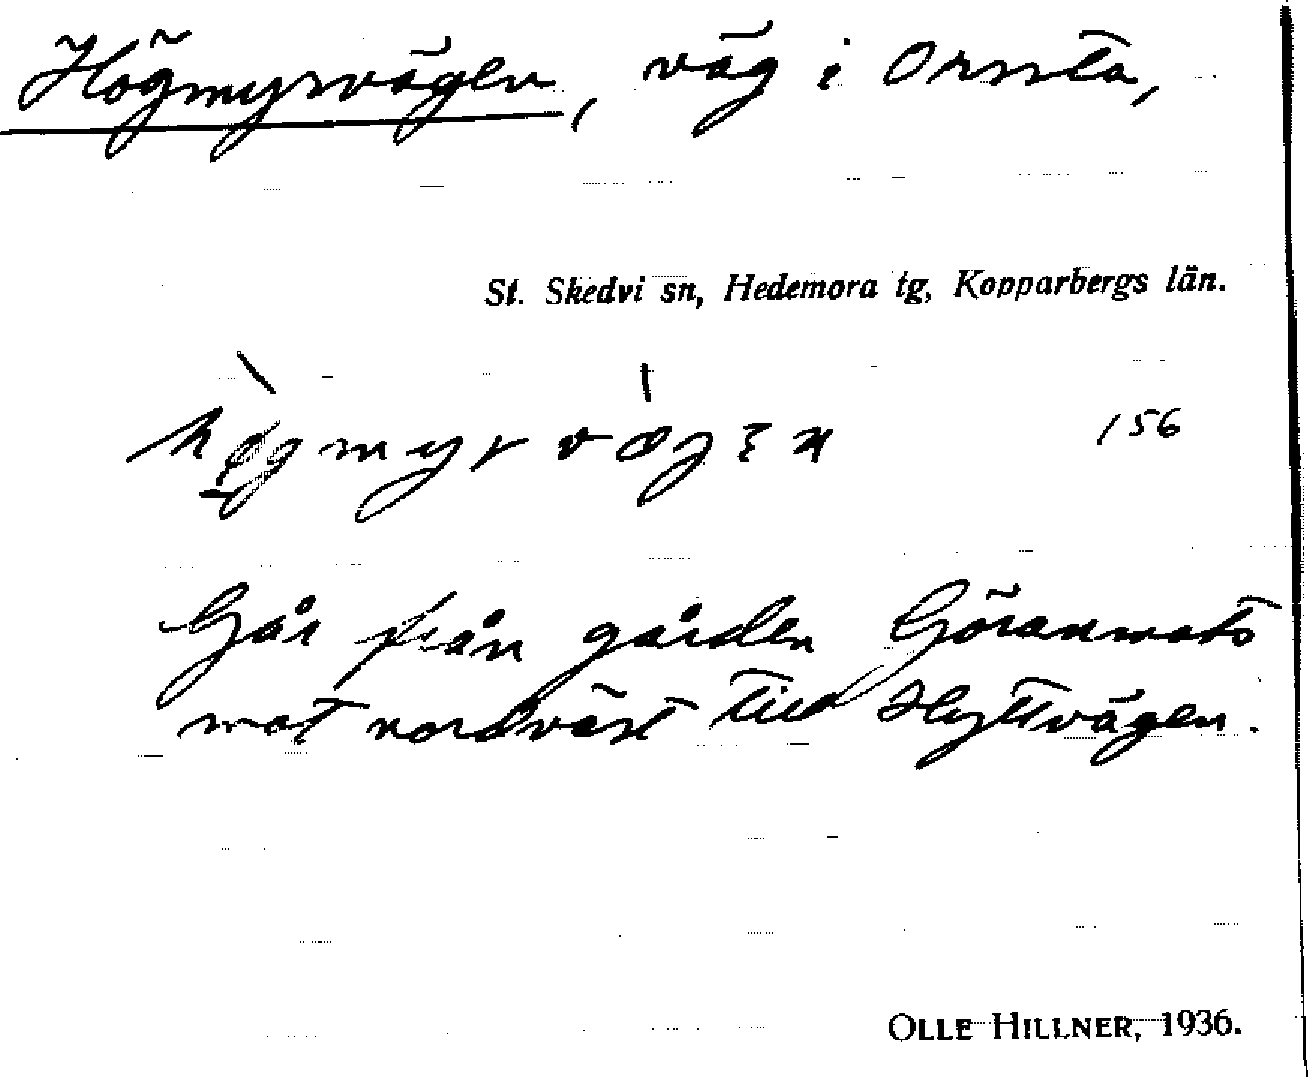 Högmyrvägen, väg i Ornsta,
St. Skedvi sn, Hedemora tg, Kopparbergs län.
156
Går från gården Göransmats
mot nordväst till Hyttvägen.
OLLE HILLNER, 1936.